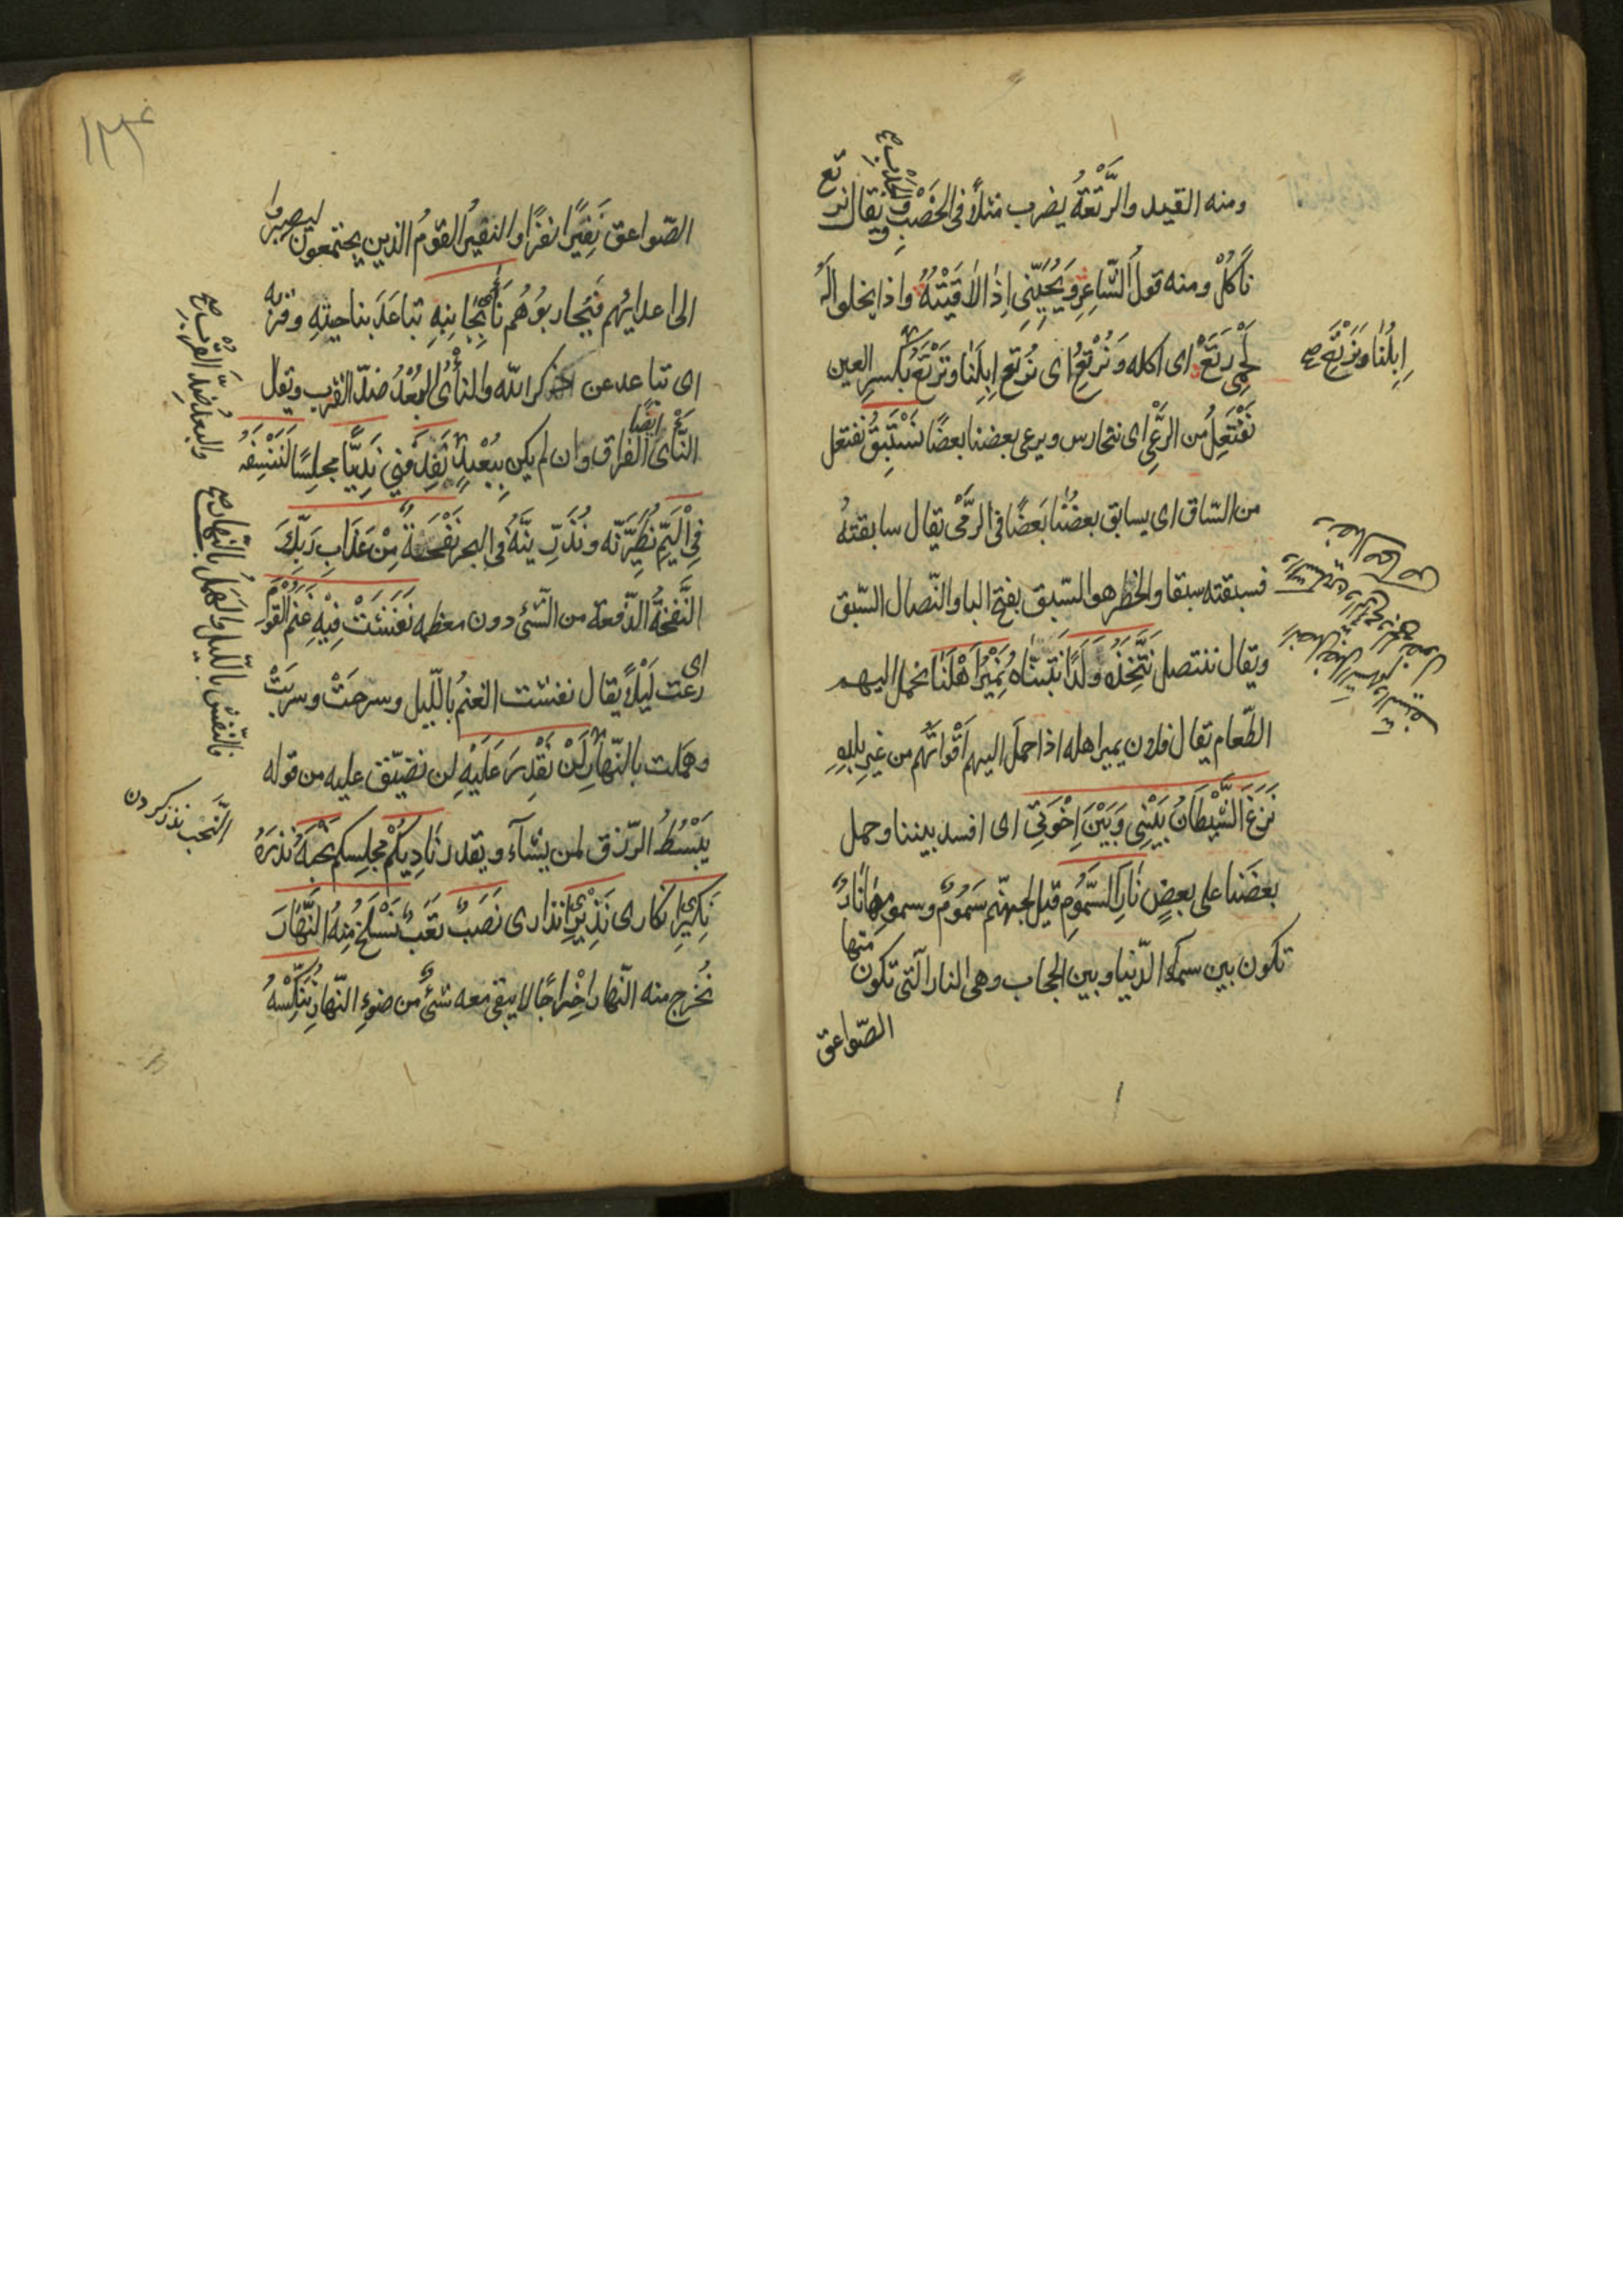 ومنه القيد والرَّتْعَةُ يضرب مثلًا فى الخصْبِ ويقال نرتع
والجَدْبِ صح
نَاكُلْ ومنه قولُ الشاعِرِ وَيُحَيِّيْنِى اِذَا لاقَيْتُهُ واذا يخلوا لَهُ
لَحْمِى رَتَعْ اى اكله وَنُرْتِعُ اى نُرْتِع ابِلَنَا وَنَرْتَعِ بكسرِ العين
اِبِلَنَا وَنَرْتَعِ صح
نَفْتَعِلُ من الرَّعْىِ اى نتحارس ويرعى بعضنا بعضًا نَسْتَبِقُ نفتعل
من السّاق اى يسابق بعضُنا بَعضًا فى الرَّمْى يقال سابقتهُ
فسبقته سبقا والخطر هو السّبق بفتح البا والنّصال السّبق
ويقال ننتصل نَتَّخِذُهُ وَلَدًا نتبنّاه نَمِيْرُ اَهْلَنَا نحمل اليهم
الطّعام يقال فلان يمير اهله اذا حمل اليهم اَقْواتَهُم من غير بلدِهِ
نَزَغَ الشَّيْطَانُ بَيْنِى وَبَيْنَ اِخْوَتِى اى افسد بيننا وحمل
بعضنا على بعضٍ نَارِ السَّمُومِ قيل لجهنّم سَمُوم وسمومها نارٌ
تكون بين سماء الدّنيا وبين الحجاب وهى النار الّتى تكون منها
الصّواعق
الصّواعق نَفِيْرًا نفرًا والنفيرُ القومُ الذين يجتمعون ليصيروا
الى اعدائِهم فَيُحاربوُهُم نَأَى بِجَانِبِهِ تباعَدَ بناحيتِهِ وقربِه
اى تباعد عن ذكر الله والنأْىُ البُعْدُ ضدّ القرب ويقال
والبعد ضدّ القُرْب صح
النَّأى الفراق ايضًا وان لم يكن بِبُعْدٍ نَفِدَ فَنِى نَدِيًّا مجلِسًا لَنَنْسِفَنَّهُ
فِى الْيَمِّ نُطَيِّرَنّه ونُذَرِّيَنَّهُ فى البحر نَفْحَةٌ مِنْ عَذَابِ رَبِّكَ
النَّفْحَةُ الدّفعة من الشّئ دون معظمه نَفَشَتْ فِيْهِ غَنَمُ الْقَوْمِ
اى رعَت لَيْلًا يقال نفشت الغنمُ بالّليل وسرحَتْ وسرَبَتْ
وهملت بالنّهار لَنْ نَقْدِرَ عَلَيْهِ لن نضيّق عليه من قوله
فالنّفش بالّليل والهَمَلُ بالنّهار صح
يَبْسُطُ الرّزق لمن يشآء ويقدر نَادِيكُمْ مجلِسكم نَحْبَهُ نذرَهُ
النَّحْب نذر كردن
نَكِيْرِ انكارى نَذِيْرِ انذارى نَصَبٌ تَعَبٌ نَسْلَخُ مِنْهُ النَّهَارَ
نُخرج منه النّهار اِخْراجًا لا يبقى معه شئٌ من ضوءِ النّهار نُنَكِّسْهُ